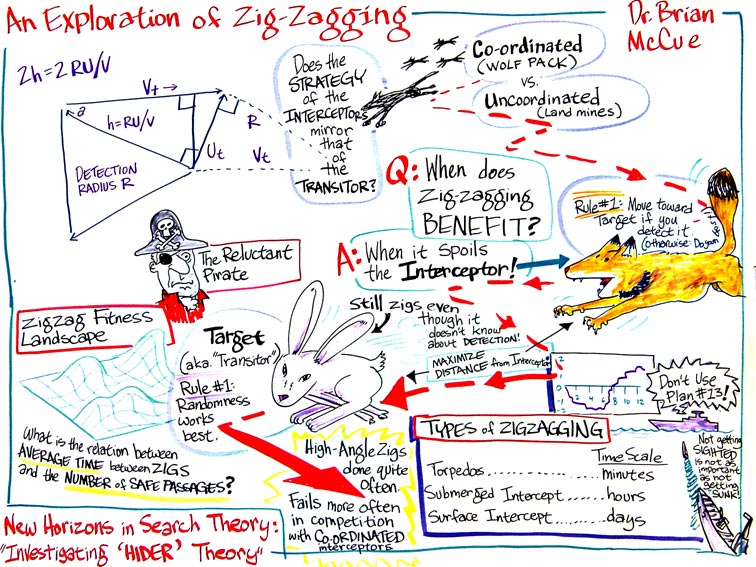 An Exploration of Zig-Zagging
Dr. Brian
McCue
2h = 2RU/V
V_t →
a
h=RU/V
R
U_t
V_t
DETECTION
RADIUS R
Does the
STRATEGY
of the
INTERCEPTORS
mirror
that
of
the
TRANSITOR?
Co-ordinated
(WOLF PACK)
vs.
Uncoordinated
(Land mines)
Q: When does
Zig-zagging
BENEFIT?
A: When it spoils
the Interceptor!
Rule #1: Move toward
Target if you
detect it
(otherwise
The Reluctant
Pirate
Zigzag Fitness
Landscape
Target
(aka. "Transitor")
Rule #1:
Randomness
works
best.
Still zigs even
though it
doesn't know
about DETECTION!
MAXIMIZE
DISTANCE from Interceptor
2
0
-2
2 4 6 8 10 12
Don't Use
Plan #13!
What is the relation between
AVERAGE TIME between ZIGS
and the NUMBER of SAFE PASSAGES?
High-Angle Zigs
done quite
often.
Fails more often
in competition
with Co-ORDINATED
interceptors
TYPES of ZIGZAGGING
Time Scale
Torpedos............minutes
Submerged Intercept......hours
Surface Intercept.....days
Not getting
SIGHTED
is not as
important
as not
getting
SUNK!
New Horizons in Search Theory:
"Investigating 'HIDER' Theory"